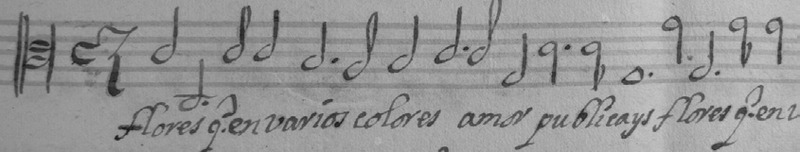 flores q̃. en varios colores amor publicays flores q̃. en v